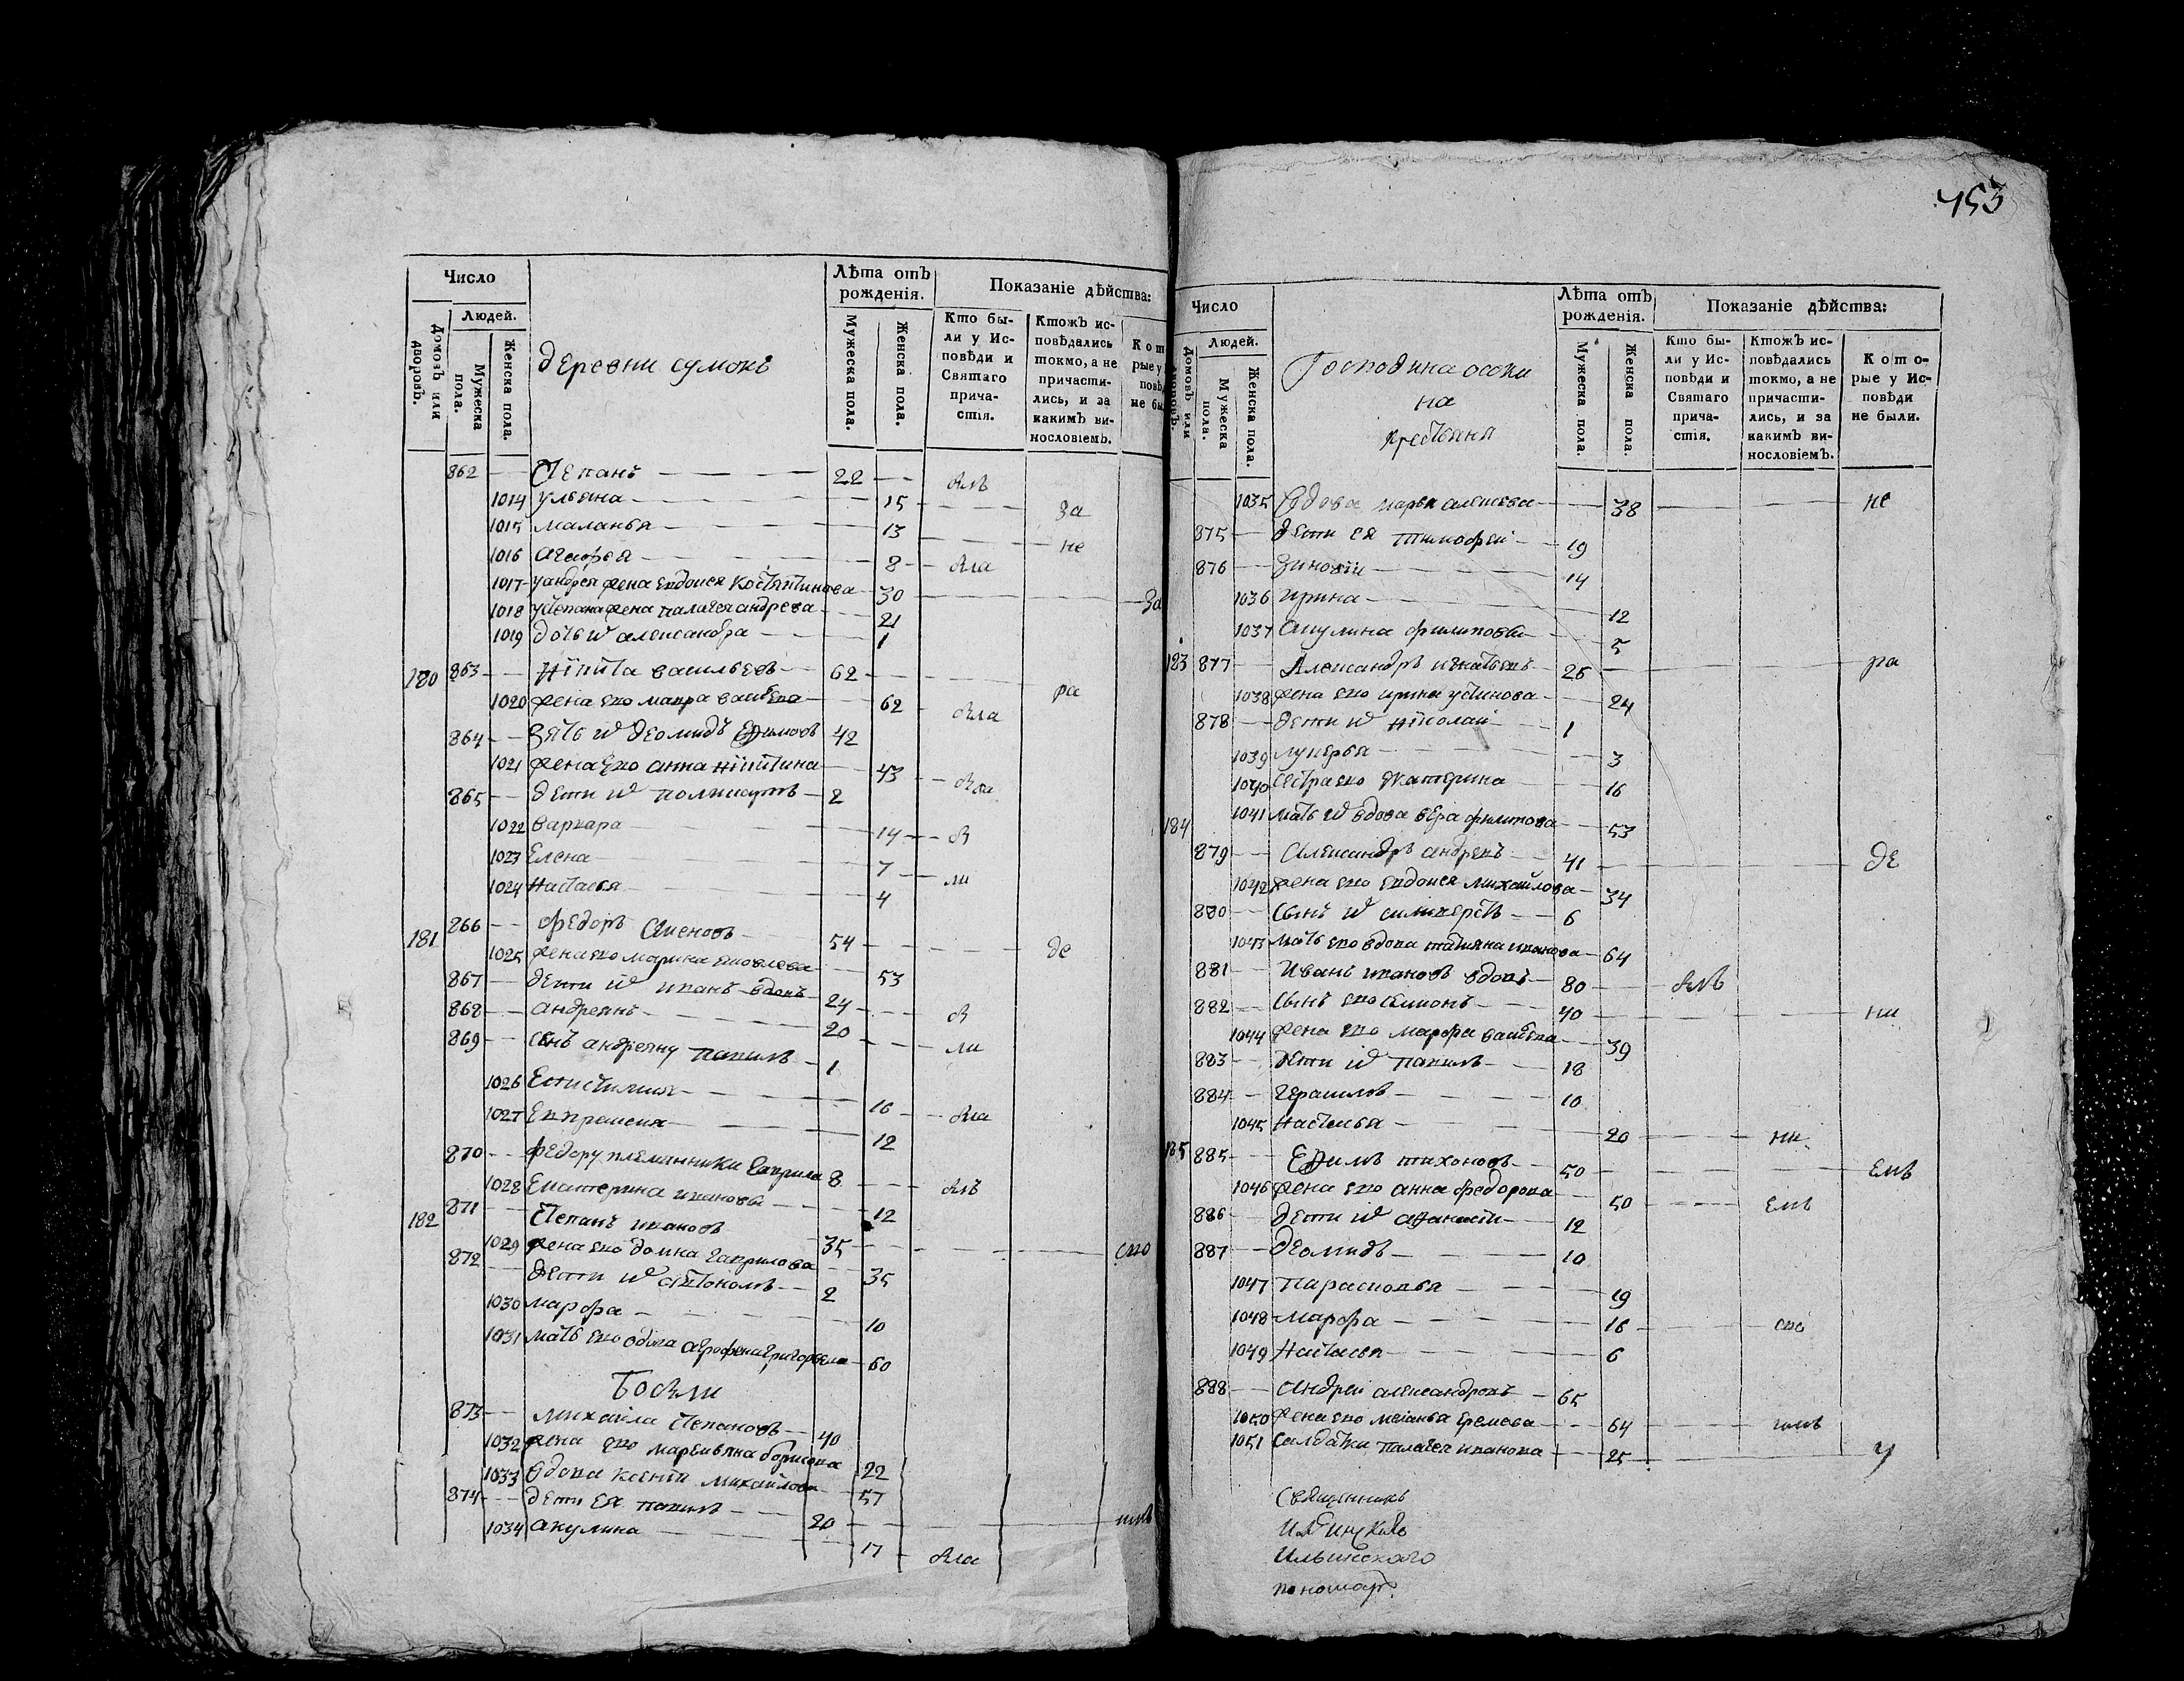 453
Число
Людей.
Домовъ или дворовъ.
Мужеска пола.
Женска пола.
деревни сумокъ
Лѣта отъ рожденія.
Мужеска пола.
Женска пола.
Показаніе дѣйства:
Кто были у Исповѣди и Святаго причастія.
Ктожъ исповѣдались токмо, а не причастились, и за какимъ винословіемъ.
862 Степанъ 22
1014 ульяна 15 за
1015 маланья 13 не
1016 агафея 8
1017 у андрея жена евдокея Костянтинова 30 за
1018 у степана жена палагея андреева 21
1019 дочь их александра 1
180 863 Никита васильевъ 62 ра
1020 жена ево мавра васильева 62
864 Зять их деомидъ Ефимовъ 42
1021 жена ево анна никитина 43
865 дети их поликарпъ 2
1022 варвара 14
1023 Елена 7 ли
1024 Настасья 4
181 866 федоръ Семеновъ 54 де
1025 жена ево марина яковлева 53
867 дети их иванъ вдовъ 24
868 андреянъ 20 ли
869 сынъ андреяну павилъ 1
1026 Епистимия 16
1027 Евпраксия 12
870 федору племянники Гаврила 8
1028 Екатерина иванова 12
182 871 Степанъ ивановъ 35 сво
1029 жена ево домна гаврилова 35
872 дети их антономъ 2
1030 марфа 10
1031 мать ево вдова аграфена григорьева 60
Бобыли
873 михайла степановъ 40
1032 жена ево маремьяна борисова 22
1033 вдова Ксения михайлова 57
874 дети ея павилъ 20
1034 акулина 17
Число
Людей.
Домовъ или дворовъ.
Мужеска пола.
Женска пола.
Господина осоки
на
крестьяня
Лѣта отъ рожденія.
Мужеска пола.
Женска пола.
Показаніе дѣйства:
Кто были у Исповѣди и Святаго причастія.
Ктожъ исповѣдались токмо, а не причастились, и за какимъ винословіемъ.
Которые у Исповѣди не были.
1035 вдова марья алексева 38 не
875 дети ея тимофеи 19
876 зиновiи 14
1036 ирина 12
1037 акулина филипова 5
183 877 Александръ игнатьевъ 26 ра
1038 жена ево ирина устинова 24
878 дети их николаи 1
1039 лукерья 3
1040 сестра ево екатерина 16
1041 мать их вдова вера филипова 53
184 879 Александръ андревъ 41 де
1042 жена ево евдокея михаилова 34
880 сынъ их силиверстъ 6
1043 мать ево вдова татьяна иванова 64
881 Иванъ ивановъ вдовъ 80
882 сынъ ево симионъ 40 ни
1044 жена ево марфа васильева 39
883 дети их павилъ 18
884 герасимъ 10
1045 Настасья 20 ни
185 885 Ефимъ тихоновъ 50 емъ
1046 жена ево анна федорова 50 емъ
886 дети их афанасеи 12
887 деомидъ 10
1047 парасковья 19
1048 марфа 16 сво
1049 Настасья 6
888 андреи александровъ 65
1050 жена ево меланья еремева 64
1051 салдатки палагея иванова 25 у
Священникъ
Ильинского
пономарь